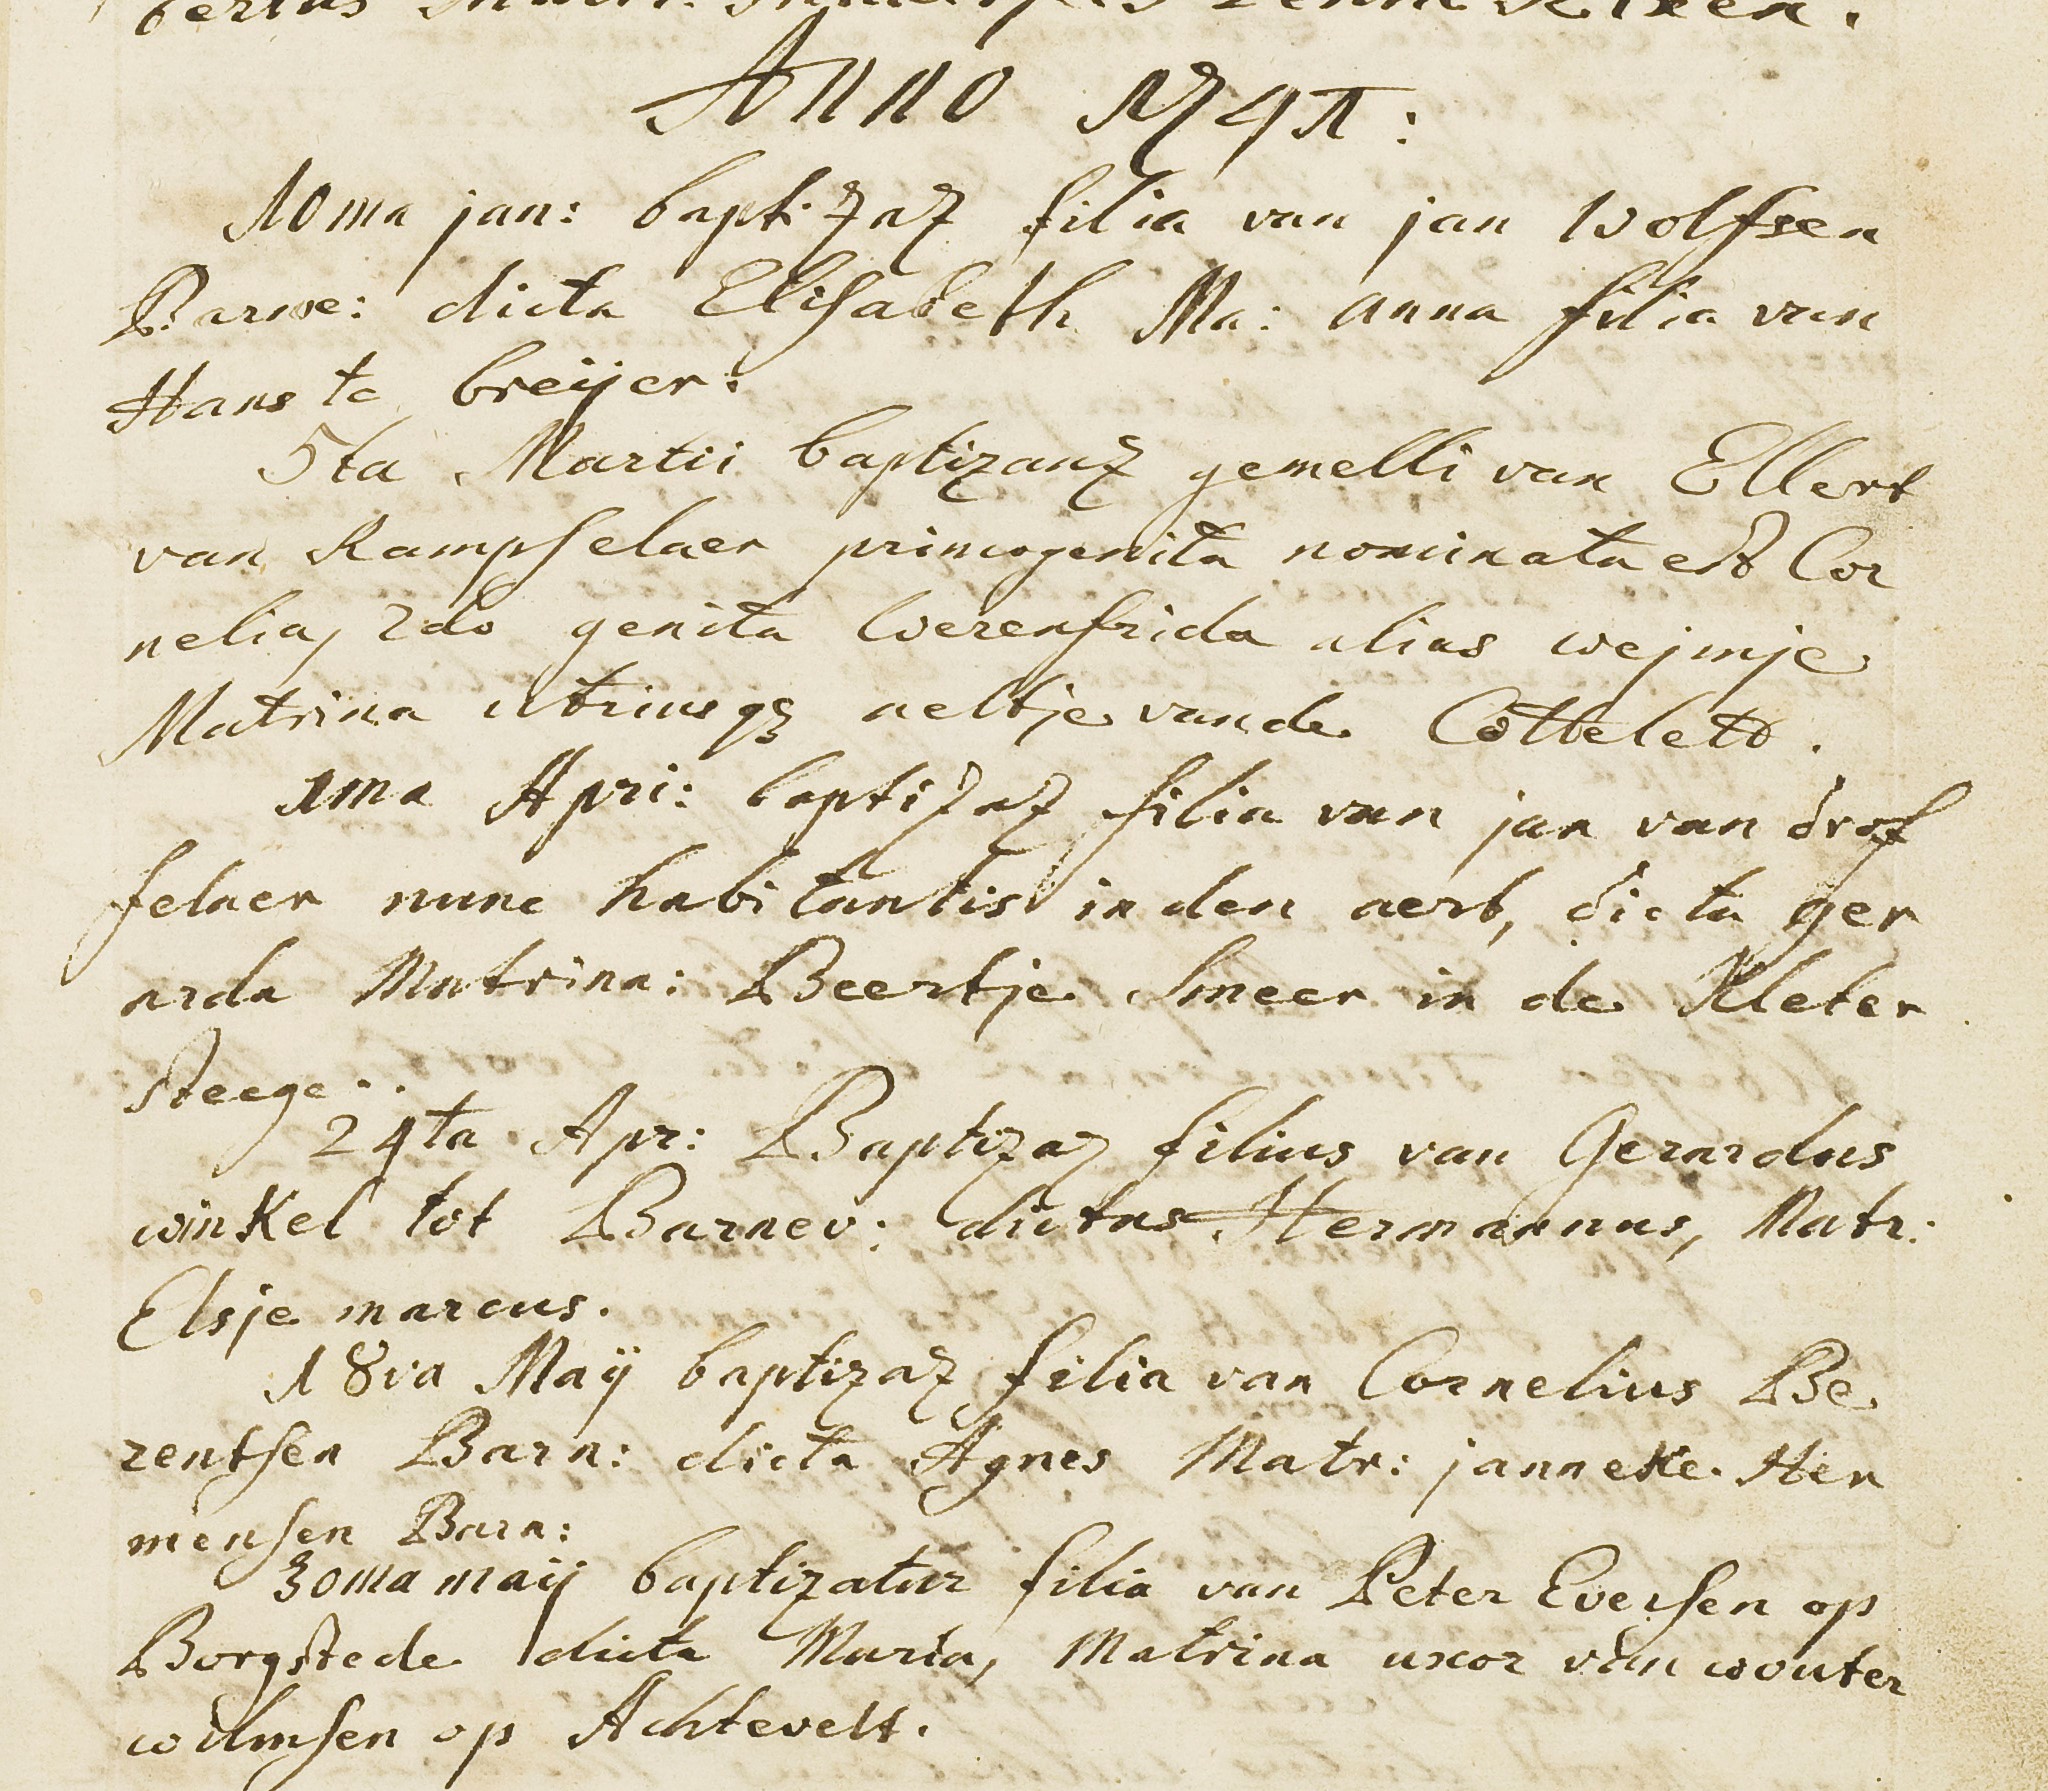 Anno 1741:
10ma jan: baptizaz filia van jan Wolfsen
Barwe: dicta Elisabeth Ma: anna filia van
Hans te breijer:
5ta Martii baptizanz gemelli van Ellert
van Rampselaer primogenita nominata est Cor
nelia, 2do genita Werenfrida alias wejmje
Matrina utriusq3 neltje vande Cottelett.
1ma Apri: baptizaz filia van jan van drof
felaer nunc habitantis in den aert, dicta ger
arda Matrina: Beertje Smeer in de Kleter
steege..
24ta Apr: Baptizaz filius van Gerardus
winkel tot Barnev: dictus Hermannus, Matr:
Elsje marcus.
18va Maij baptizaz filia van Cornelius Be
rentsen Barn: dicta Agnes Matr: janneke Her
mensen Barn:
30ma maij baptizatur filia van Peter Eversen op
Borgstede dicta Maria, Matrina uxor van wouter
wilmsen op Achtevelt.